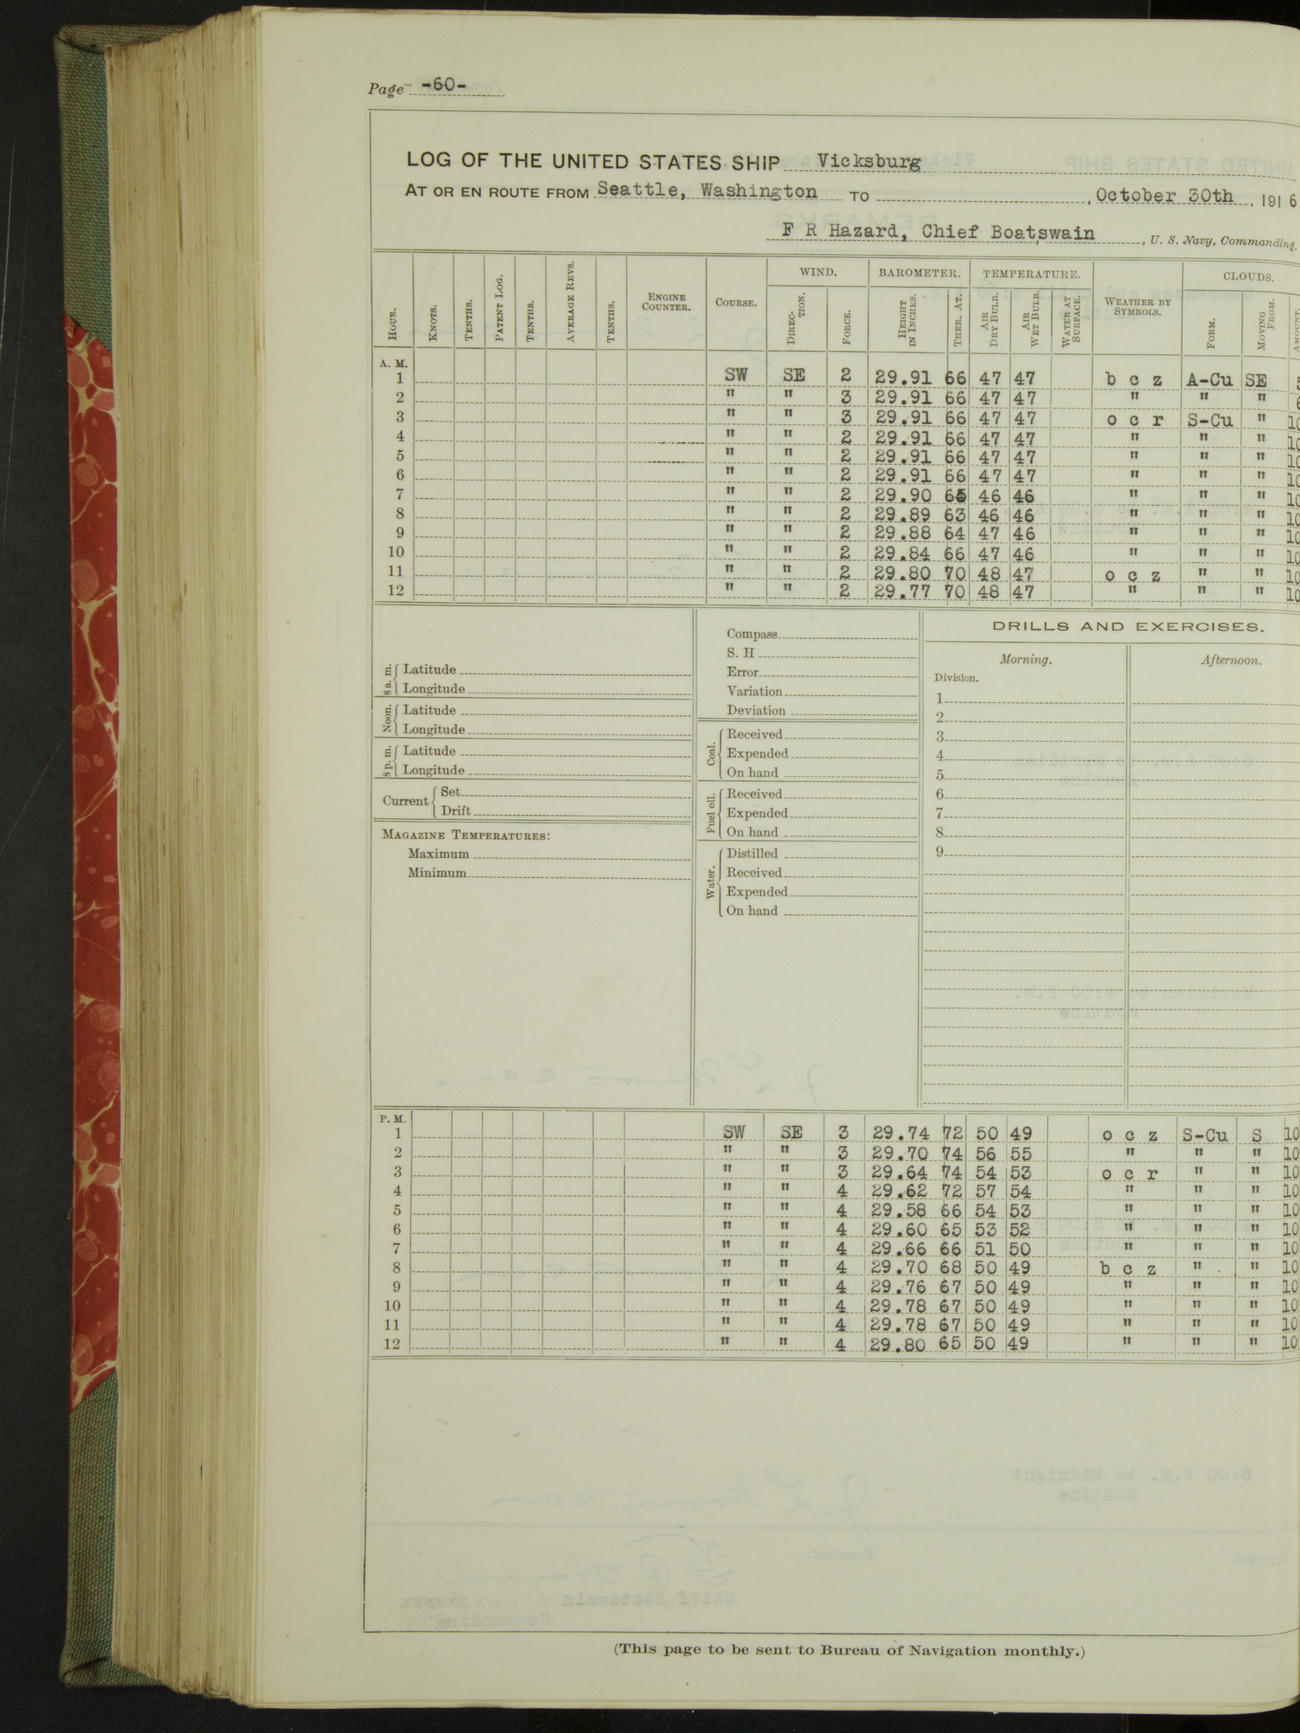 Page -60-
LOG OF THE UNITED STATES SHIP Vicksburg
AT OR EN ROUTE FROM Seattle, Washington TO , October 30th , 1916
F R Hazard, Chief Boatswain , U. S. Navy, Commanding.
HOUR. KNOTS. TENTHS. PATENT LOG. TENTHS. AVERAGE REVS. TENTHS. ENGINE COUNTER. COURSE. WIND. DIRECTION. FORCE. BAROMETER. HEIGHT IN INCHES. THER. AT. TEMPERATURE. AIR DRY BULB. AIR WET BULB. WATER AT SURFACE. WEATHER BY SYMBOLS. CLOUDS. FORM. MOVING FROM. AMOUNT.
A. M.
1 SW SE 2 29.91 66 47 47 b c z A-Cu SE 5
2 " " 3 29.91 66 47 47 " " " 6
3 " " 3 29.91 66 47 47 o c r S-Cu " 10
4 " " 2 29.91 66 47 47 " " " 10
5 " " 2 29.91 66 47 47 " " " 10
6 " " 2 29.91 66 47 47 " " " 10
7 " " 2 29.90 46 46 " " " 10
8 " " 2 29.89 63 46 46 " " " 10
9 " " 2 29.88 64 47 46 " " " 10
10 " " 2 29.84 66 47 46 " " " 10
11 " " 2 29.80 70 48 47 o c z " " 10
12 " " 2 29.77 70 48 47 " " " 10
8 a. m. Latitude
Longitude
Noon. Latitude
Longitude
8 p. m. Latitude
Longitude
Current Set
Drift
MAGAZINE TEMPERATURES:
Maximum
Minimum
Compass
S. H
Error
Variation
Deviation
Coal. Received
Expended
On hand
Fuel oil. Received
Expended
On hand
Water. Distilled
Received
Expended
On hand
DRILLS AND EXERCISES.
Morning. Afternoon.
Division.
1
2
3
4
5
6
7
8
9
P. M.
1 SW SE 3 29.74 72 50 49 o c z S-Cu S 10
2 " " 3 29.70 74 56 55 " " " 10
3 " " 3 29.64 74 54 53 o c r " " 10
4 " " 4 29.62 72 57 54 " " " 10
5 " " 4 29.58 66 54 53 " " " 10
6 " " 4 29.60 65 53 52 " " " 10
7 " " 4 29.66 66 51 50 " " " 10
8 " " 4 29.70 68 50 49 b c z " " 10
9 " " 4 29.76 67 50 49 " " " 10
10 " " 4 29.78 67 50 49 " " " 10
11 " " 4 29.78 67 50 49 " " " 10
12 " " 4 29.80 65 50 49 " " " 10
(This page to be sent to Bureau of Navigation monthly.)